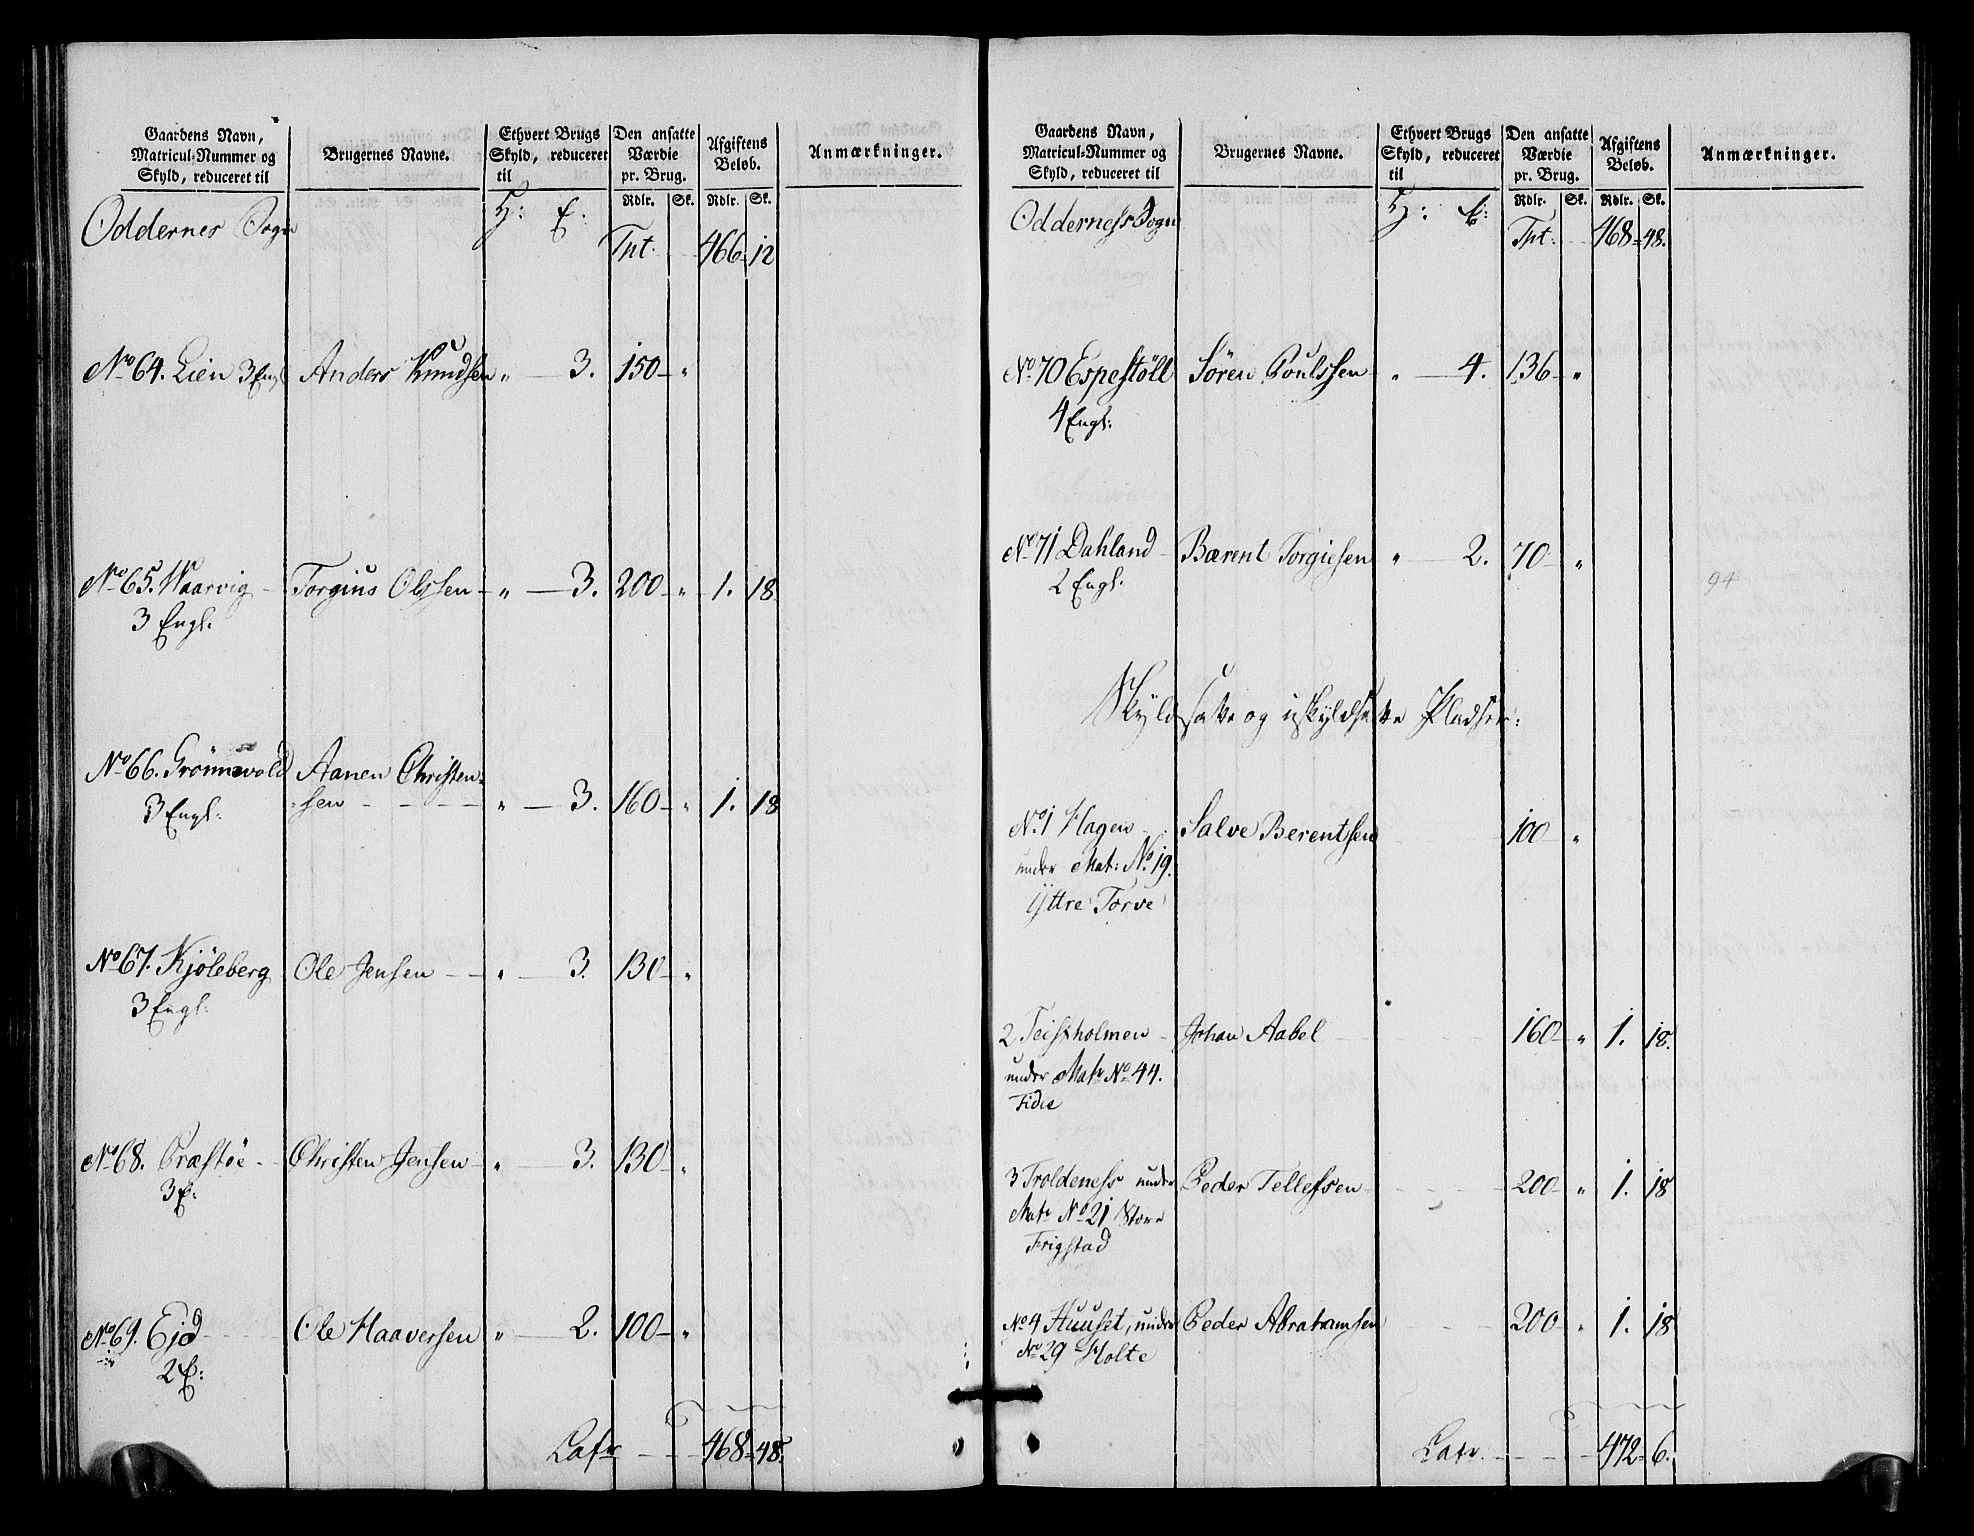 Gaardens Navn,
Matricul-Nummer og
Skyld, reduceret til
Brugernes Navne.
Ethvert Brugs
Skyld, reduceret
til
Den ansatte
Værdie
pr. Brug.
Afgiftens
Beløb.
Anmærkninger.
Rdlr. Sk. Rdlr. Sk.
Oddernes Sogn H: E:
Tpt. 466 12
No 64. Lien 3 Engl Anders Knudsen " 3. 150 "
No 65. Waarvig Torgius Olssen " 3. 200 " 1. 18
3 Engl:
No 66. Grönnevold Aanen Christen-
sen " 3. 160 " 1. 18
3 Engl:
No 67. Kjöleberg Ole Jensen " 3. 130 "
3 Engl:
No 68. Præstöe Christen Jensen " 3. 130 "
3 E:
No 69. Ejd Ole Haaversen " 2. 100 "
2 E:
Latr 468 48.
Gaardens Navn,
Matricul-Nummer og
Skyld, reduceret til
Brugernes Navne.
Ethvert Brugs
Skyld, reduceret
til
Den ansatte
Værdie
pr. Brug.
Afgiftens
Beløb.
Anmærkninger.
Rdlr. Sk. Rdlr. Sk.
Oddernes Sogn H: E:
Tpt. 468 48.
No 70 Espestöll Søren Poulssen " 4. 136 "
4 Engl:
No 71 Dahland Bærent Torgiesen " 2. 70 "
2 Engl:
94
Skyldsatte og uskyldsatte Pladser:
No 1 Hagen Salve Berentsen 100 "
under Mat: No 19.
Yttre Torve
2 Teistholmen Johan Aabel 160 " 1. 18.
under Matr No 44.
Fidie
3 Troldeness under Peder Tellefsen 200 " 1. 18
Matr No 21 Store
Frigstad
No 4 Huuset, under Peder Abrahamsen 200 " 1. 18
No 29 Holte
Latr. 472 6.